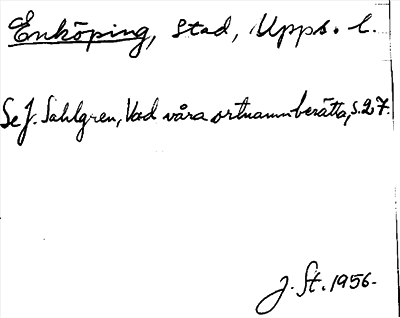 Enköping, Stad, Upps. l.
Se J. Sahlgren, Vad våra ortnamn berätta, s. 27.
J. St. 1956.